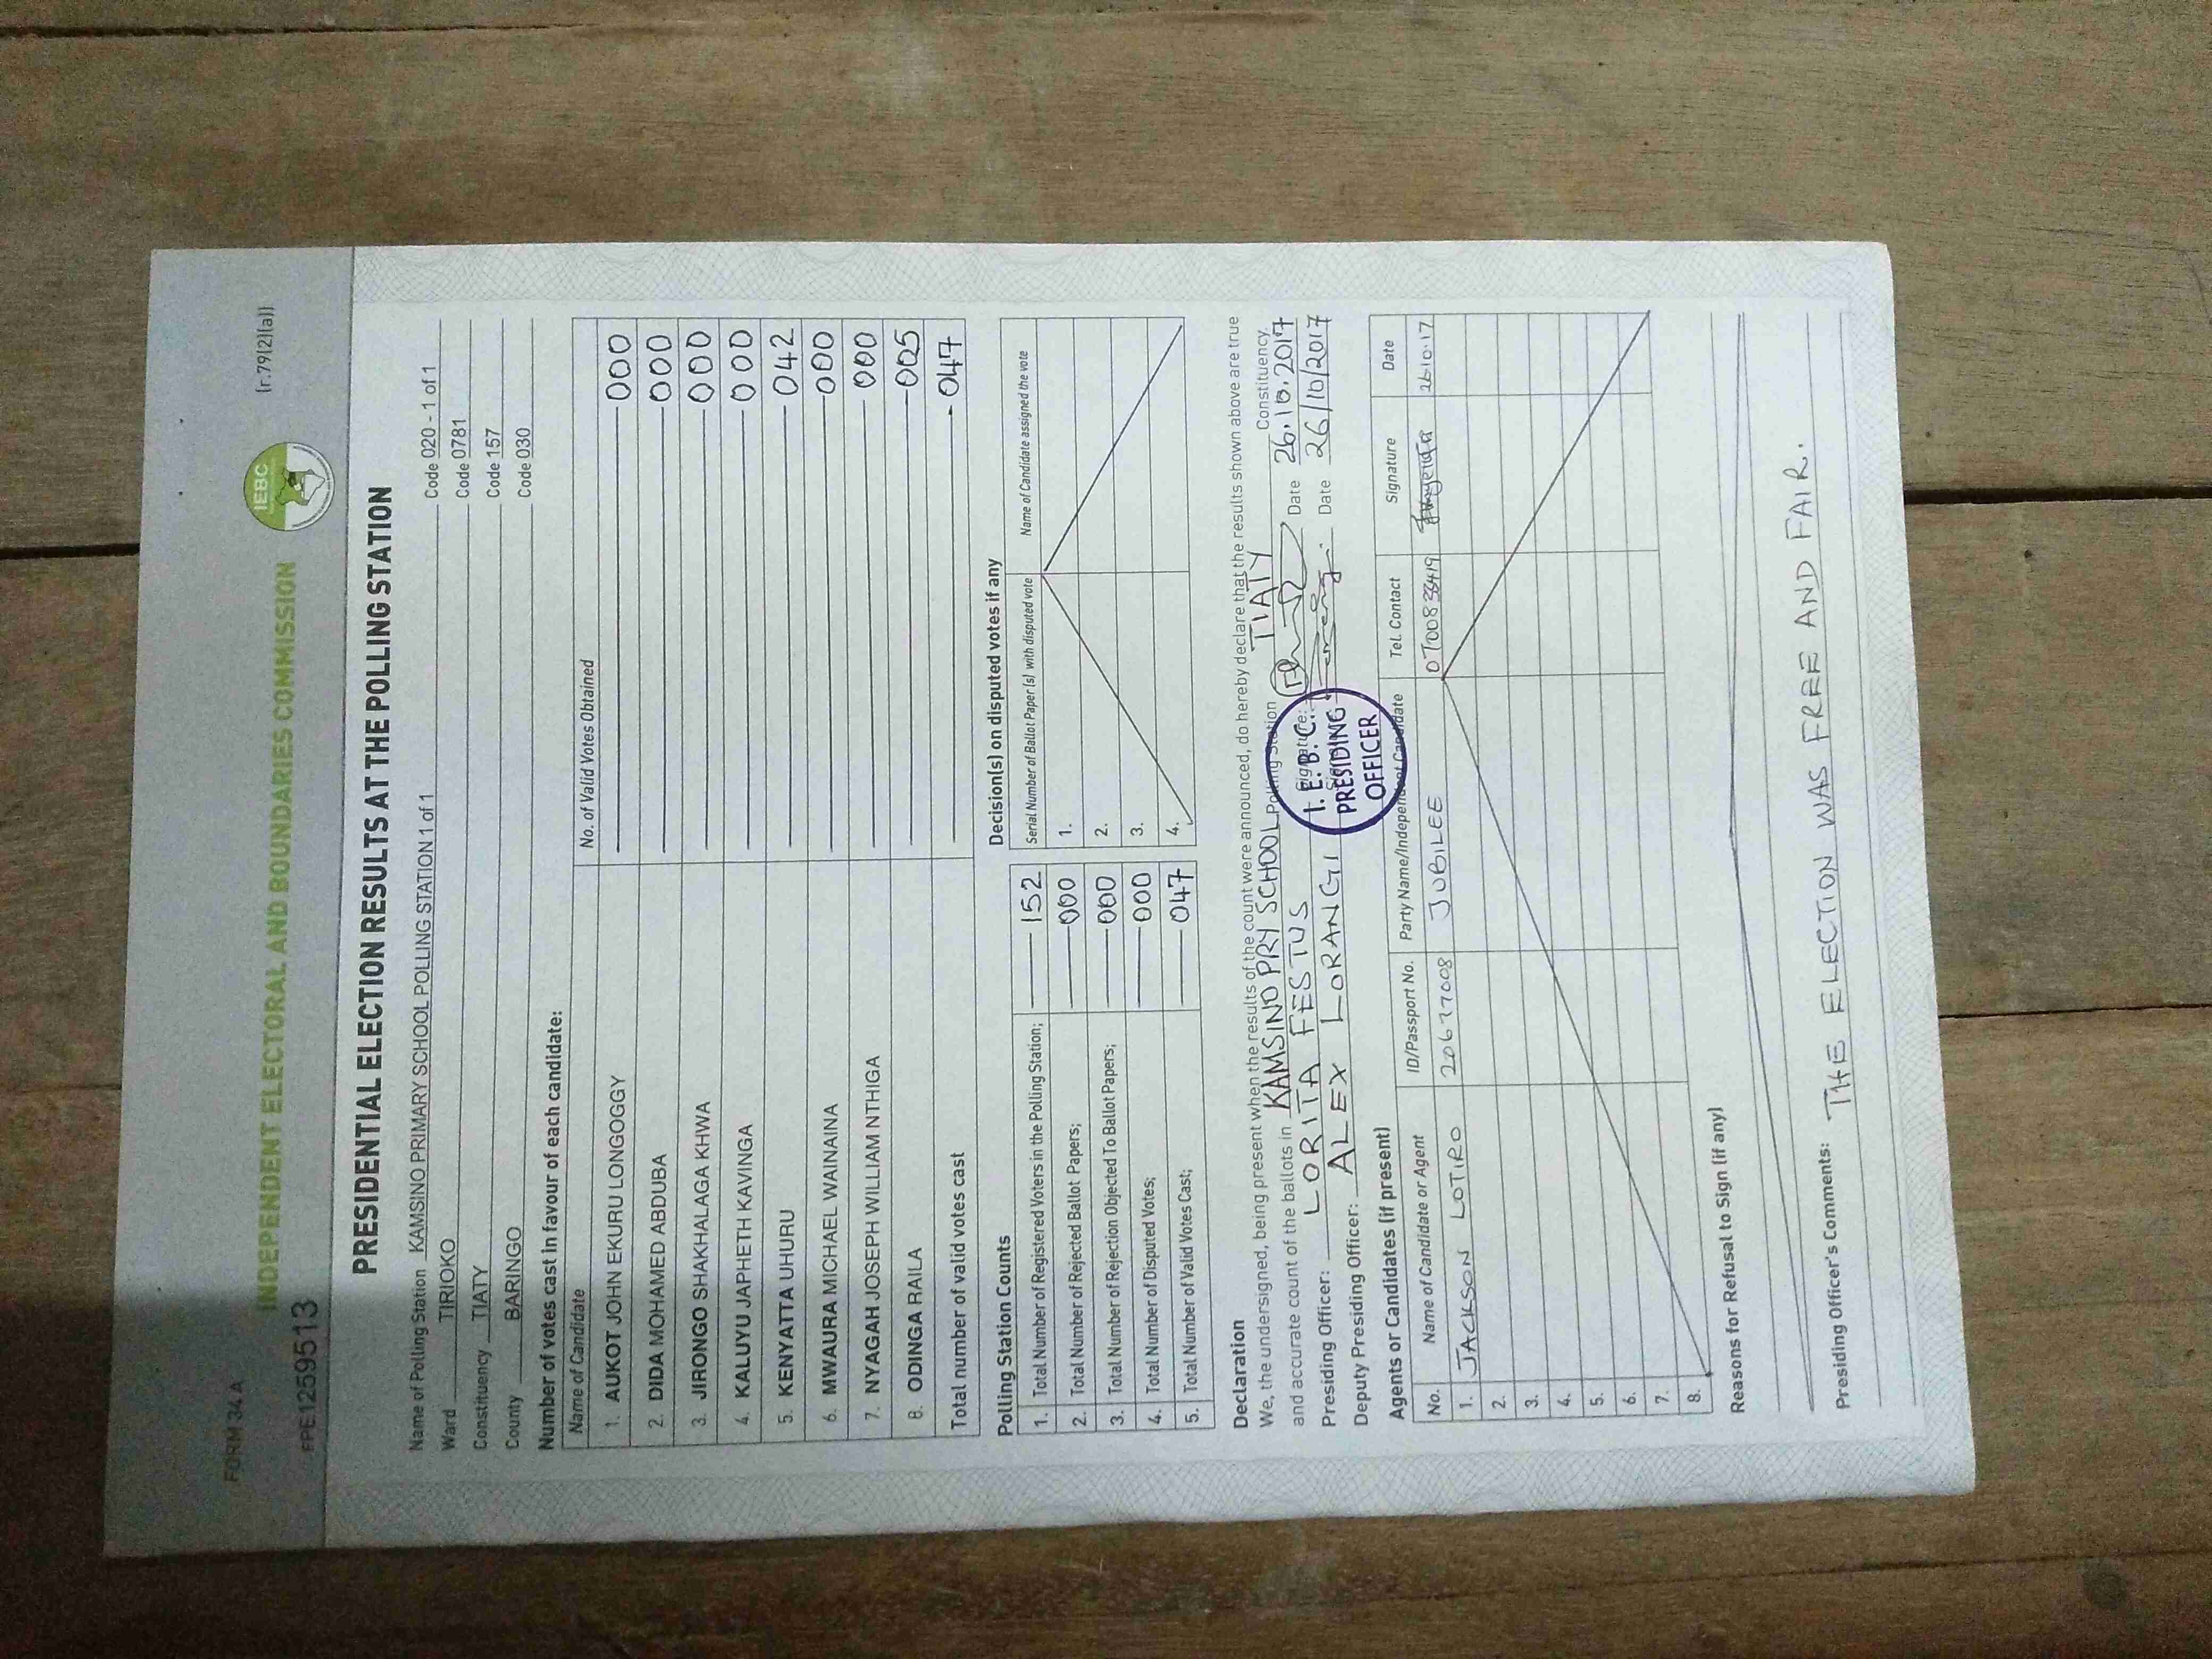 FORM 34 A
INDEPENDENT ELECTORAL AND BOUNDARIES COMMISSION
IEBC
(r.79(2)(a))
PPE1259513
PRESIDENTIAL ELECTION RESULTS AT THE POLLING STATION
Name of Polling Station KAMSINO PRIMARY SCHOOL POLLING STATION 1 of 1 Code 020 - 1 of 1
Ward TIRIOKO Code 0781
Constituency TIATY Code 157
County BARINGO Code 030
Number of votes cast in favour of each candidate:
Name of Candidate No. of Valid Votes Obtained
1. AUKOT JOHN EKURU LONGOGGY 000
2. DIDA MOHAMED ABDUBA 000
3. JIRONGO SHAKHALAGA KHWA 000
4. KALUYU JAPHETH KAVINGA 000
5. KENYATTA UHURU 042
6. MWAURA MICHAEL WAINAINA 000
7. NYAGAH JOSEPH WILLIAM NTHIGA 000
8. ODINGA RAILA 005
Total number of valid votes cast 047
Polling Station Counts
1. Total Number of Registered Voters in the Polling Station; 152
2. Total Number of Rejected Ballot Papers; 000
3. Total Number of Rejection Objected To Ballot Papers; 000
4. Total Number of Disputed Votes; 000
5. Total Number of Valid Votes Cast; 047
Decision(s) on disputed votes if any
Serial Number of Ballot Paper (s) with disputed vote Name of Candidate assigned the vote
1.
2.
3.
4.
Declaration
We, the undersigned, being present when the results of the count were announced, do hereby declare that the results shown above are true
and accurate count of the ballots in KAMSINO PRY SCHOOL Polling Station TIATY Constituency
Presiding Officer: LORITA FESTUS Signature: Date 26.10.2017
Deputy Presiding Officer: ALEX LORANGI Date 26/10/2017
I.E.B.C.
PRESIDING
OFFICER
Agents or Candidates (if present)
No. Name of Candidate or Agent ID/Passport No. Party Name/Independent Candidate Tel. Contact Signature Date
1. JACKSON LOTIRO 20677008 JUBILEE 26.10.17
2.
3.
4.
5.
6.
7.
8.
Reasons for Refusal to Sign (if any)
Presiding Officer's Comments: THE ELECTION WAS FREE AND FAIR.